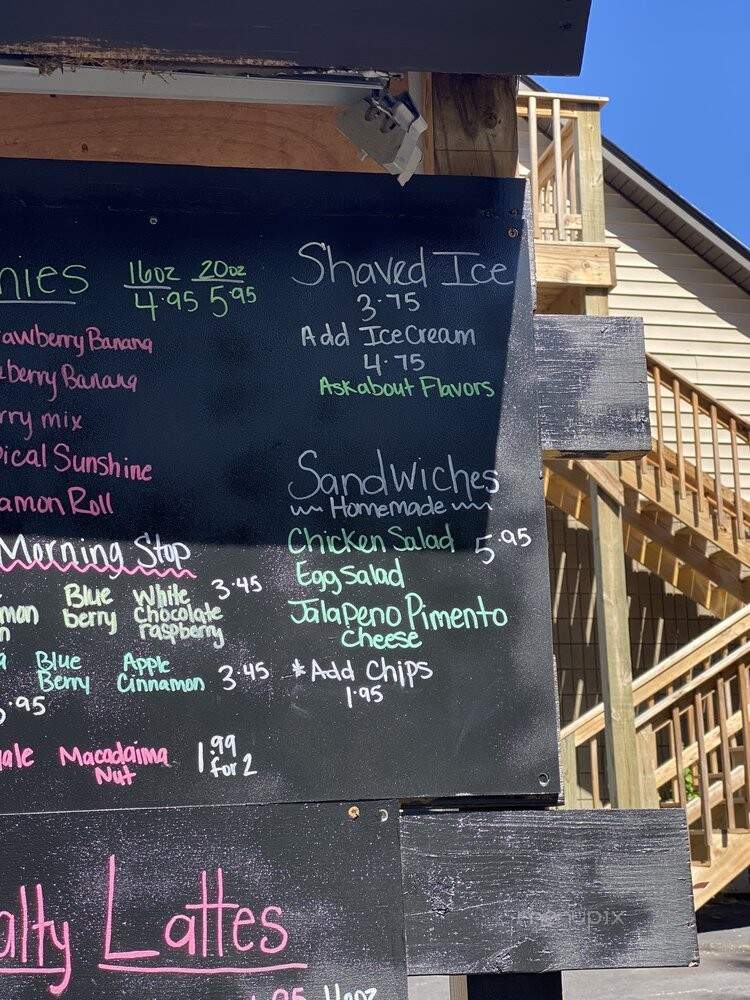 nies 16oz 20oz
4.95 5.95
rawberry Banana
berry Banana
rry mix
ical Sunshine
amon Roll
Shaved Ice
3.75
Add IceCream
4.75
Ask about Flavors
Sandwiches
Homemade
Chicken Salad 5.95
Egg Salad
Jalapeno Pimento
Cheese
*Add Chips
1.95
Morning Stop
Blue White 3.45
mon berry Chocolate
n raspberry
a Blue Apple 3.45
Berry Cinnamon
.95
ale Macadaima 1.99
Nut for 2
alty Lattes
16oz
menupix